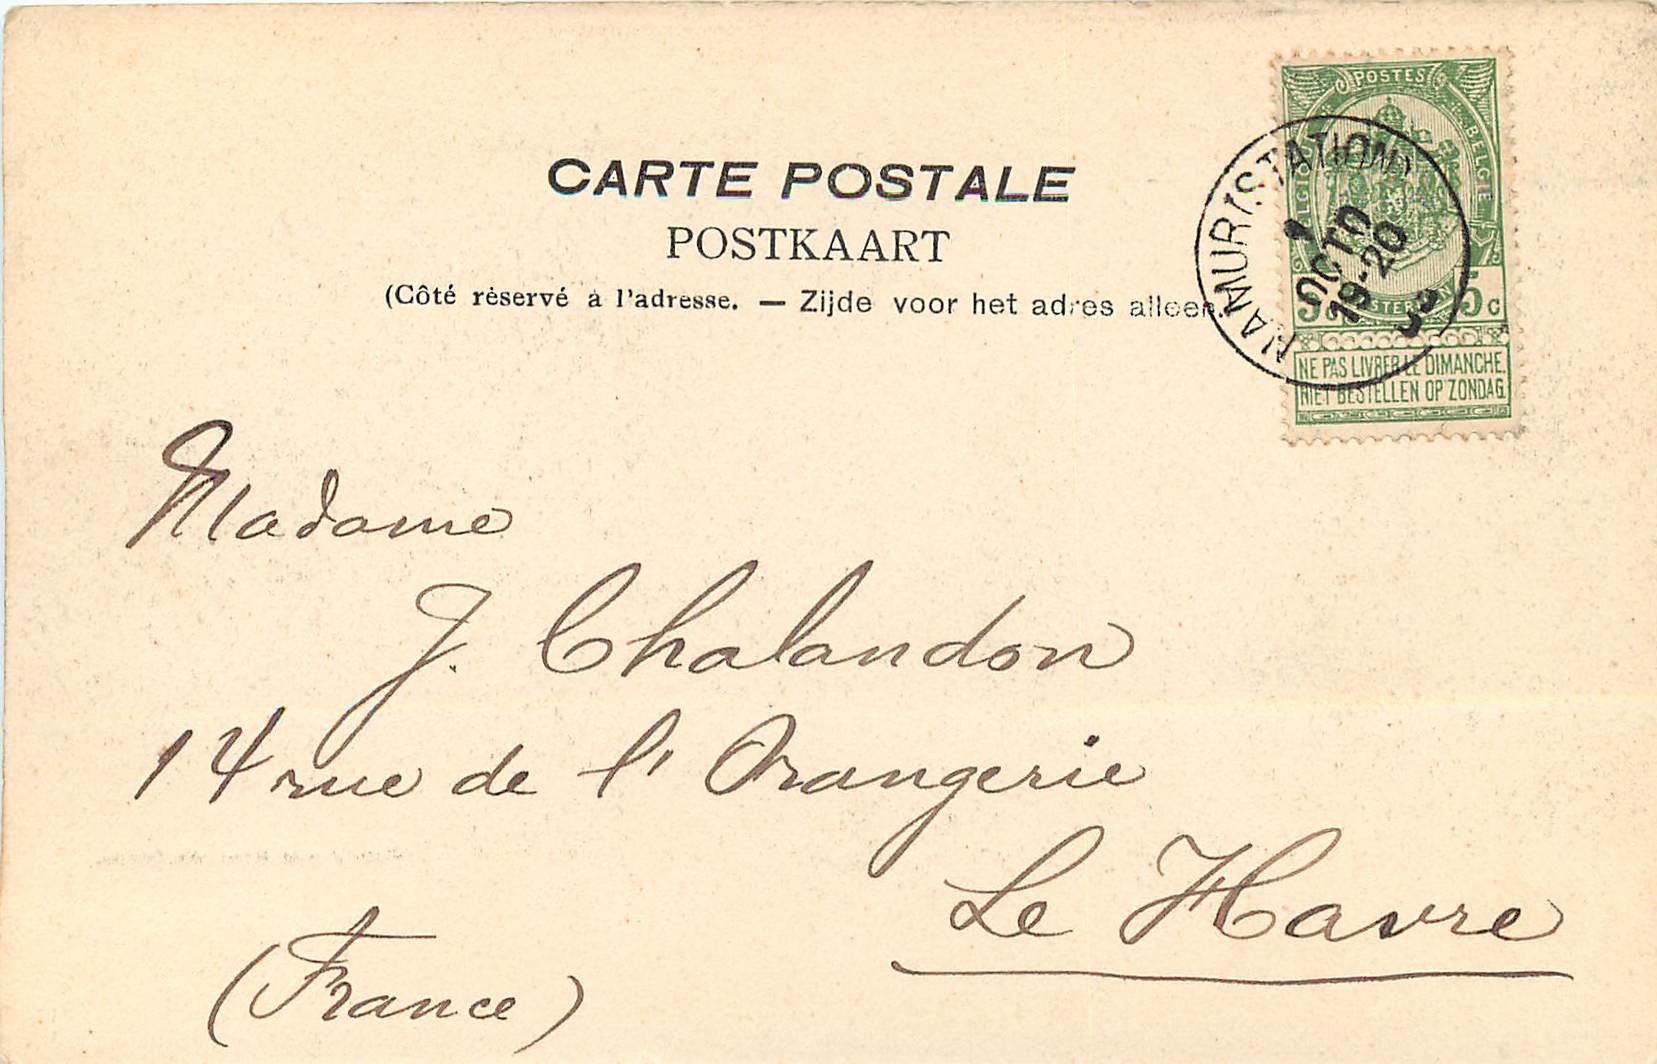 CARTE POSTALE
POSTKAART
(Côté réservé à l'adresse. — Zijde voor het adres alleen.
POSTES
BELGIE
NAMUR (STATION)
1
OCTO
19-20
5c 5c
NE PAS LIVRER LE DIMANCHE
NIET BESTELLEN OP ZONDAG
Madame
J. Chalandon
14 rue de l'Orangerie
Le Havre
(France)